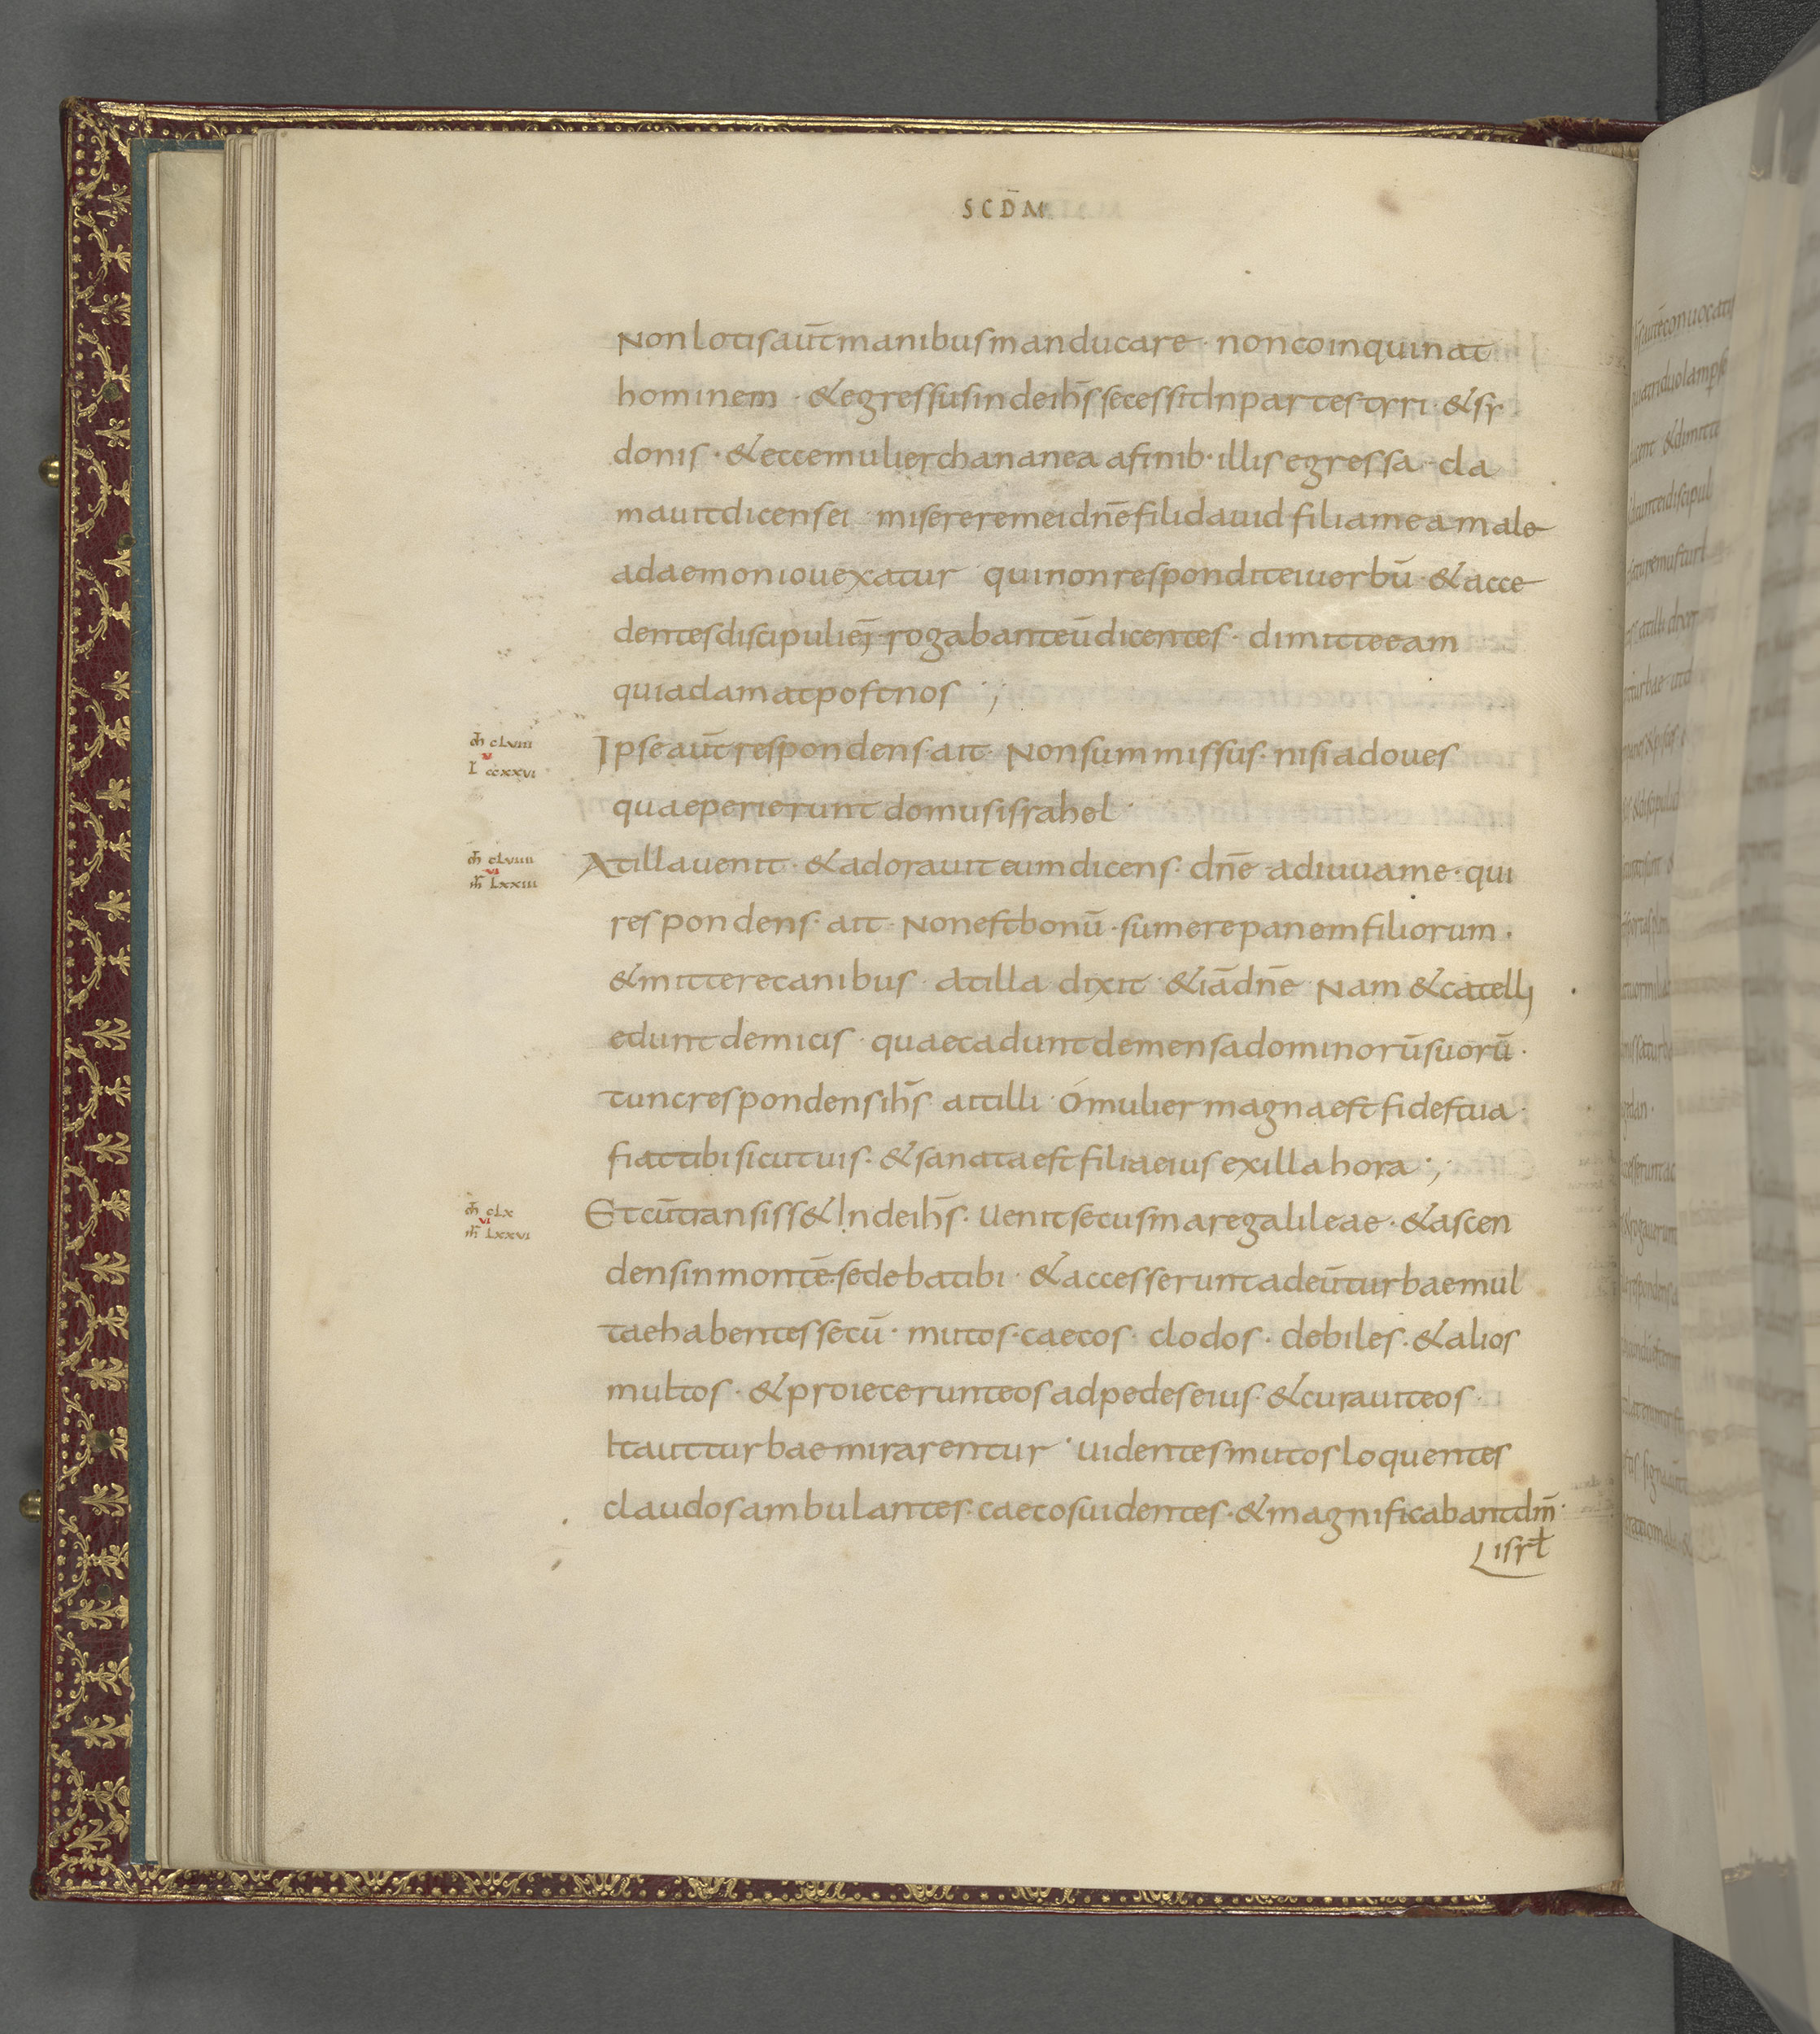 SCD̄M
Non lotis aūt manibus manducare · non coinquinat
hominem · & egressus inde ih̄s secessit In partes tyri · & sy
donis · & ecce mulier chananea a finib· illis egressa · cla
mauit dicens ei · miserere mei dn̄e fili dauid filia mea male
a daemonio uexatur · qui non respondit ei uerbū · & acce
dentes discipuli ei; rogabant eū dicentes · dimitte eam
quia clamat post nos ·,
m̄ clviii
v
I ccxxvi
Ipse aūt respondens · ait · Non sum missus · nisi ad oues
quae perierunt domus israhel ·
m̄ clviiii
vi
m̄ Lxxiii
At illa uenit · & adorauit eum dicens · dn̄e adiuua me · qui
respondens · ait · Non est bonū · sumere panem filiorum ·
& mittere canibus · at illa dixit · &iā dn̄e Nam & catelli
edunt de micis · quae cadunt de mensa dominorū suorū ·
tunc respondens ih̄s ait illi · Ó mulier magna est fides tua ·
fiat tibi sicut uis · & sanata est filia eius ex illa hora ·,
m̄ clx
vi
m̄ Lxxvi
Et cū transiss& Inde ih̄s · Uenit secus mare galileae · & ascen
dens in montē · sedebat ibi · & accesserunt ad eū turbae mul
tae habentes secū · mutos · caecos · clodos · debiles · & alios
multos · & proiecerunt eos ad pedes eius · & curauit eos ·
Ita ut turbae mirarentur · uidentes mutos loquentes
claudos ambulantes · caecos uidentes · & magnificabant dm̄ ·
isrł